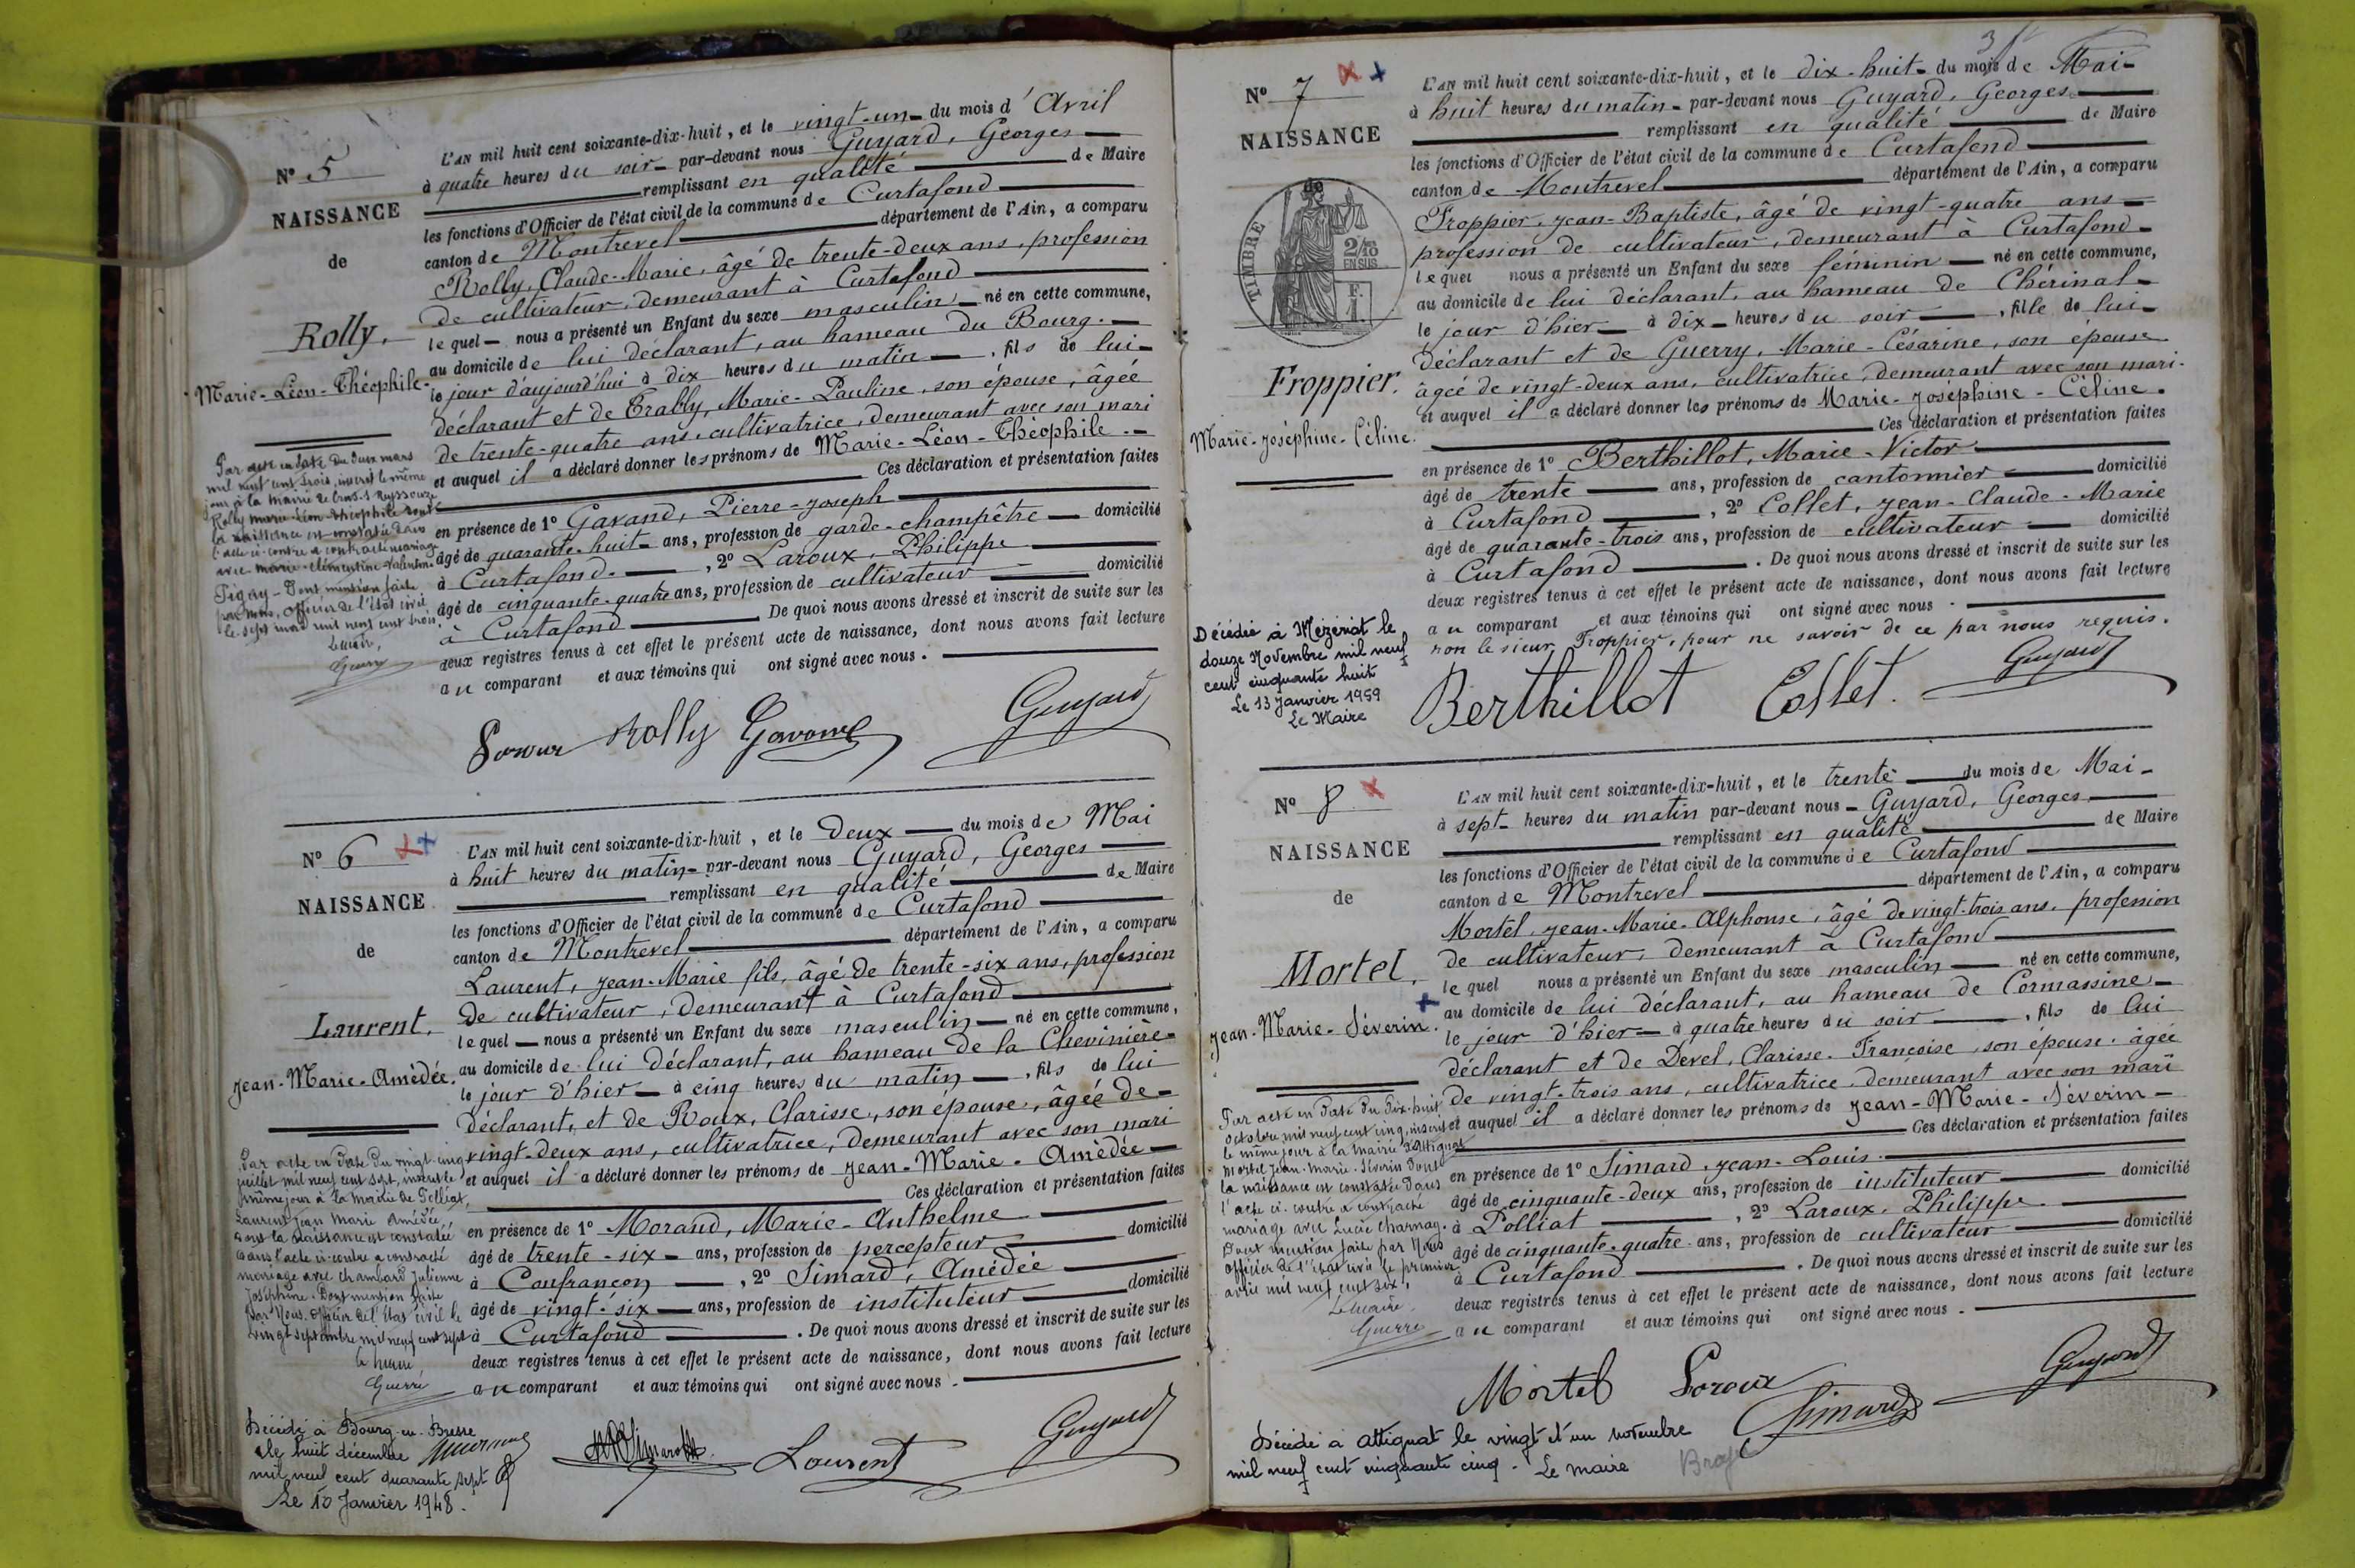 N° 5
NAISSANCE
de
Rolly.
Marie-Léon-Théophile.
L'AN mil huit cent soixante-dix-huit, et le vingt-un du mois d'Avril
à quatre heures du soir par-devant nous Guyard, Georges
remplissant en qualité de Maire
les fonctions d'Officier de l'état civil de la commune de Curtafond
canton de Montrevel département de l'Ain, a comparu
Rolly, Claude-Marie, âgé de trente-deux ans, profession
de cultivateur, demeurant à Curtafond
lequel nous a présenté un Enfant du sexe masculin né en cette commune,
au domicile de lui déclarant, au hameau du Bourg.
le jour d'aujourd'hui à dix heures du matin, fils de lui
déclarant et de Trably, Marie-Pauline, son épouse, âgée
de trente-quatre ans, cultivatrice, demeurant avec son mari
et auquel il a déclaré donner les prénoms de Marie-Léon-Théophile.
Ces déclaration et présentation faites
en présence de 1° Gavand, Pierre-Joseph
âgé de quarante-huit ans, profession de garde-champêtre domicilié
à Curtafond., 2° Laroux, Philippe
âgé de cinquante-quatre ans, profession de cultivateur domicilié
à Curtafond De quoi nous avons dressé et inscrit de suite sur les
deux registres tenus à cet effet le présent acte de naissance, dont nous avons fait lecture
au comparant et aux témoins qui ont signé avec nous.
Par acte en date du deux mars
mil neuf cent trois, inscrit le même
jour à la mairie de Cras-s Reyssouze
Rolly Marie-Léon-Théophile dont
la naissance est constatée dans
l'acte ci-contre a contracté mariage
avec Marie-Clémentine-Valentine
Pigay - Dont mention faite
par Nous, Officier de l'état civil
le sept mars mil neuf cent trois.
Le Maire,
Rolly Gavand Guyard
N° 6
NAISSANCE
de
Laurent.
Jean-Marie-Amédée.
L'AN mil huit cent soixante-dix-huit, et le Deux du mois de Mai
à huit heures du matin par-devant nous Guyard, Georges
remplissant en qualité de Maire
les fonctions d'Officier de l'état civil de la commune de Curtafond
canton de Montrevel département de l'Ain, a comparu
Laurent, Jean-Marie fils, âgé de trente-six ans, profession
de cultivateur, demeurant à Curtafond
lequel nous a présenté un Enfant du sexe masculin né en cette commune,
au domicile de lui déclarant, au hameau de la Chevinière
le jour d'hier à cinq heures du matin, fils de lui
déclarant, et de Roux, Clarisse, son épouse, âgée de
vingt-deux ans, cultivatrice, demeurant avec son mari
et auquel il a déclaré donner les prénoms de Jean-Marie-Amédée
Ces déclaration et présentation faites
en présence de 1° Morand, Marie-Anthelme
âgé de trente-six ans, profession de percepteur domicilié
à Confrançon, 2° Simard, Amédée
âgé de vingt-six ans, profession de instituteur domicilié
à Curtafond. De quoi nous avons dressé et inscrit de suite sur les
deux registres tenus à cet effet le présent acte de naissance, dont nous avons fait lecture
au comparant et aux témoins qui ont signé avec nous.
Par acte en date du vingt-cinq
juillet mil neuf cent sept, inscrit le
même jour à la Mairie de Polliat,
Laurent Jean Marie Amédée
dont la naissance est constatée
dans l'acte ci-contre a contracté
mariage avec Chambard Julienne
Joséphine. Dont mention faite
par Nous, Officier de l'état civil le
vingt septembre mil neuf cent sept
Le Maire,
Guerre
Décédé à Bourg-en-Bresse
le huit décembre
mil neuf cent quarante sept
Le 10 Janvier 1948.
Simard Laurent Guyard
3
N° 7
NAISSANCE
de
TIMBRE
2/10
EN SUS
F.
1
Froppier.
Marie-Joséphine-Céline.
L'AN mil huit cent soixante-dix-huit, et le dix-huit du mois de Mai
à huit heures du matin par-devant nous Guyard, Georges
remplissant en qualité de Maire
les fonctions d'Officier de l'état civil de la commune de Curtafond
canton de Montrevel département de l'Ain, a comparu
Froppier, Jean-Baptiste, âgé de vingt-quatre ans
profession de cultivateur, demeurant à Curtafond
lequel nous a présenté un Enfant du sexe féminin né en cette commune,
au domicile de lui déclarant, au hameau de Chérinal
le jour d'hier à dix heures du soir, fille de lui
déclarant et de Guerry, Marie-Césarine, son épouse
âgée de vingt-deux ans, cultivatrice, demeurant avec son mari.
et auquel il a déclaré donner les prénoms de Marie-Joséphine-Céline.
Ces déclaration et présentation faites
en présence de 1° Berthillot, Marie-Victor
âgé de trente ans, profession de cantonnier domicilié
à Curtafond, 2° Collet, Jean-Claude-Marie
âgé de quarante-trois ans, profession de cultivateur domicilié
à Curtafond. De quoi nous avons dressé et inscrit de suite sur les
deux registres tenus à cet effet le présent acte de naissance, dont nous avons fait lecture
au comparant et aux témoins qui ont signé avec nous
non le sieur Froppier, pour ne savoir de ce par nous requis.
Décédée à Mézériat le
douze Novembre mil neuf
cent cinquante huit
Le 13 Janvier 1959
Le Maire
Berthillot Collet. Guyard
N° 8
NAISSANCE
de
Mortel.
Jean-Marie-Séverin.
L'AN mil huit cent soixante-dix-huit, et le trente du mois de Mai
à sept heures du matin par-devant nous Guyard, Georges
remplissant en qualité de Maire
les fonctions d'Officier de l'état civil de la commune de Curtafond
canton de Montrevel département de l'Ain, a comparu
Mortel, Jean-Marie-Alphonse, âgé de vingt-trois ans, profession
de cultivateur, demeurant à Curtafond
lequel nous a présenté un Enfant du sexe masculin né en cette commune,
au domicile de lui déclarant, au hameau de Cormassine
le jour d'hier à quatre heures du soir, fils de lui
déclarant et de Devel, Clarisse-Françoise, son épouse, âgée
de vingt-trois ans, cultivatrice, demeurant avec son mari
et auquel il a déclaré donner les prénoms de Jean-Marie-Séverin
Ces déclaration et présentation faites
en présence de 1° Simard, Jean-Louis.
âgé de cinquante-deux ans, profession de instituteur domicilié
à Polliat, 2° Laroux, Philippe.
âgé de cinquante-quatre ans, profession de cultivateur domicilié
à Curtafond. De quoi nous avons dressé et inscrit de suite sur les
deux registres tenus à cet effet le présent acte de naissance, dont nous avons fait lecture
au comparant et aux témoins qui ont signé avec nous.
Par acte en date du dix-huit
octobre mil neuf cent cinq, inscrit
le même jour à la mairie d'Attignat
Mortel Jean-Marie-Séverin dont
la naissance est constatée dans
l'acte ci-contre a contracté
mariage avec Lucie Charnay.
Dont mention faite par Nous
Officier de l'état civil le premier
avril mil neuf cent six,
Le Maire,
Guerre
Mortel Laroux Simard Guyard
Décédé à Attignat le vingt et un novembre
mil neuf cent cinquante cinq. Le Maire